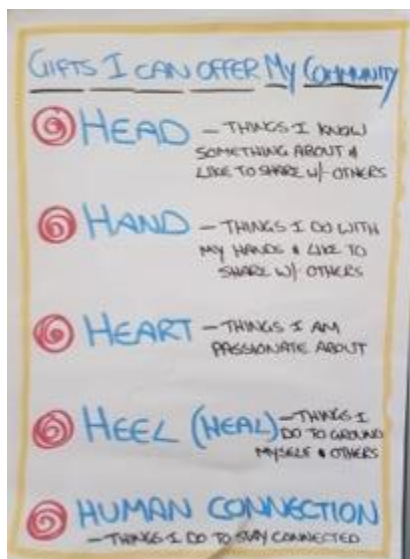 GIFTS I CAN OFFER MY COMMUNITY
HEAD - THINGS I KNOW
SOMETHING ABOUT &
LIKE TO SHARE W/ OTHERS
HAND - THINGS I DO WITH
MY HANDS & LIKE TO
SHARE W/ OTHERS
HEART - THINGS I AM
PASSIONATE ABOUT
HEEL (HEAL) - THINGS I
DO TO GROUND
MYSELF & OTHERS
HUMAN CONNECTION
- THINGS I DO TO STAY CONNECTED